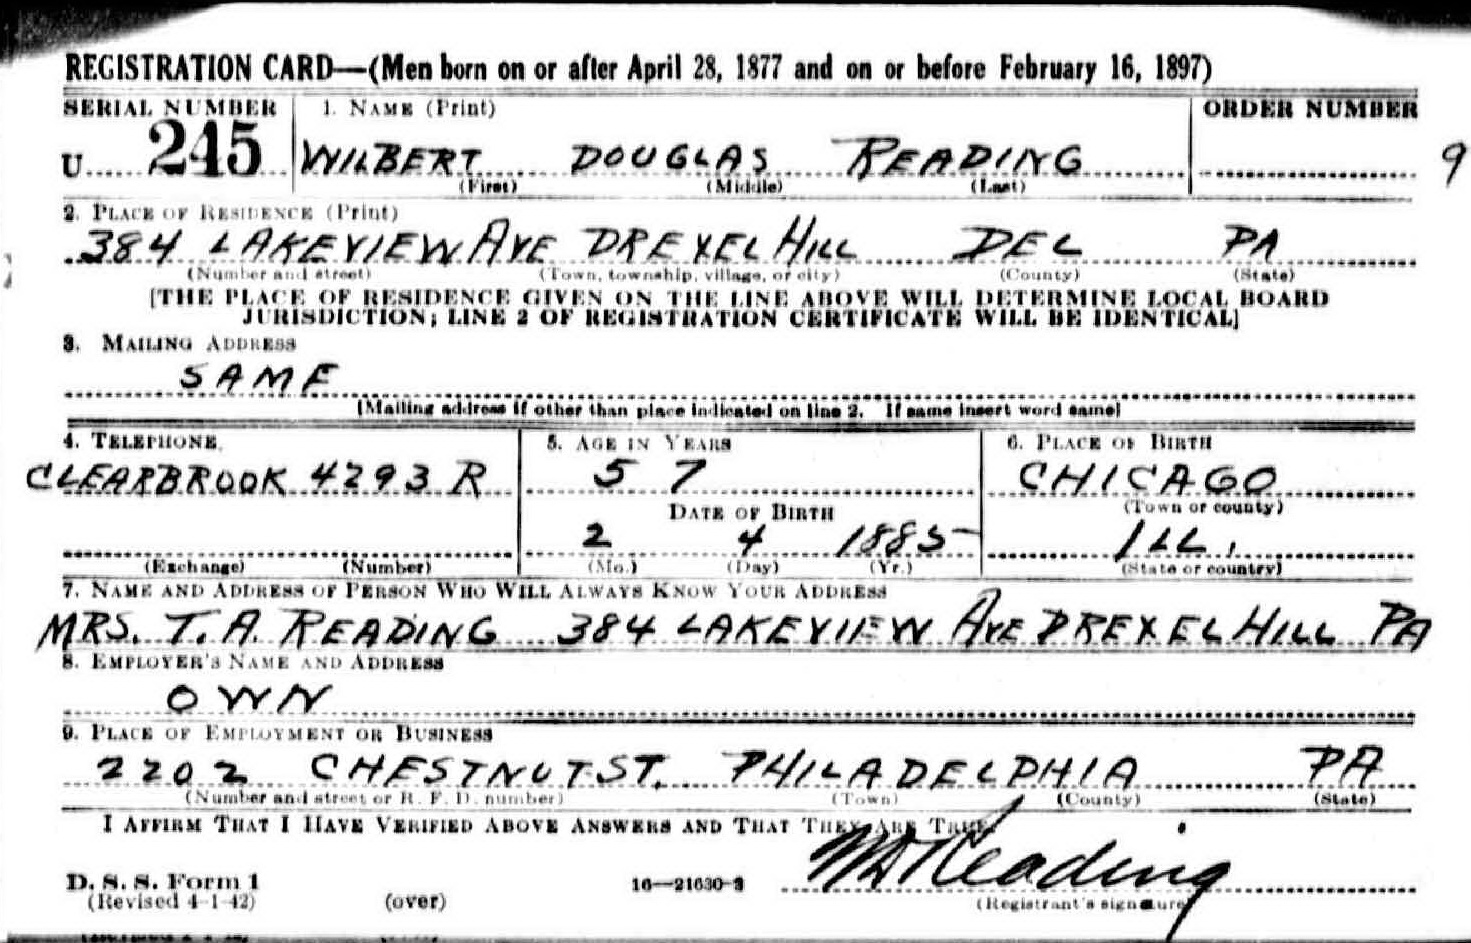 REGISTRATION CARD—(Men born on or after April 28, 1877 and on or before February 16, 1897)
SERIAL NUMBER 1. NAME (Print) ORDER NUMBER
U 245 WILBERT DOUGLAS READING 9
(First) (Middle) (Last)
2. PLACE OF RESIDENCE (Print)
384 LAKEVIEW AVE DREXEL HILL DEL PA
(Number and street) (Town, township, village, or city) (County) (State)
[THE PLACE OF RESIDENCE GIVEN ON THE LINE ABOVE WILL DETERMINE LOCAL BOARD
JURISDICTION; LINE 2 OF REGISTRATION CERTIFICATE WILL BE IDENTICAL]
3. MAILING ADDRESS
SAME
[Mailing address if other than place indicated on line 2. If same insert word same]
4. TELEPHONE 5. AGE IN YEARS 6. PLACE OF BIRTH
CLEARBROOK 4293 R 57 CHICAGO
DATE OF BIRTH (Town or county)
2 4 1885 ILL.
(Exchange) (Number) (Mo.) (Day) (Yr.) (State or country)
7. NAME AND ADDRESS OF PERSON WHO WILL ALWAYS KNOW YOUR ADDRESS
MRS. T. A. READING 384 LAKEVIEW AVE DREXEL HILL PA
8. EMPLOYER'S NAME AND ADDRESS
OWN
9. PLACE OF EMPLOYMENT OR BUSINESS
2202 CHESTNUT ST. PHILADELPHIA PA
(Number and street or R. F. D. number) (Town) (County) (State)
I AFFIRM THAT I HAVE VERIFIED ABOVE ANSWERS AND THAT THEY ARE TRUE.
WD Reading
D. S. S. Form 1 16—21630-2
(Revised 4-1-42) (over) (Registrant's signature)